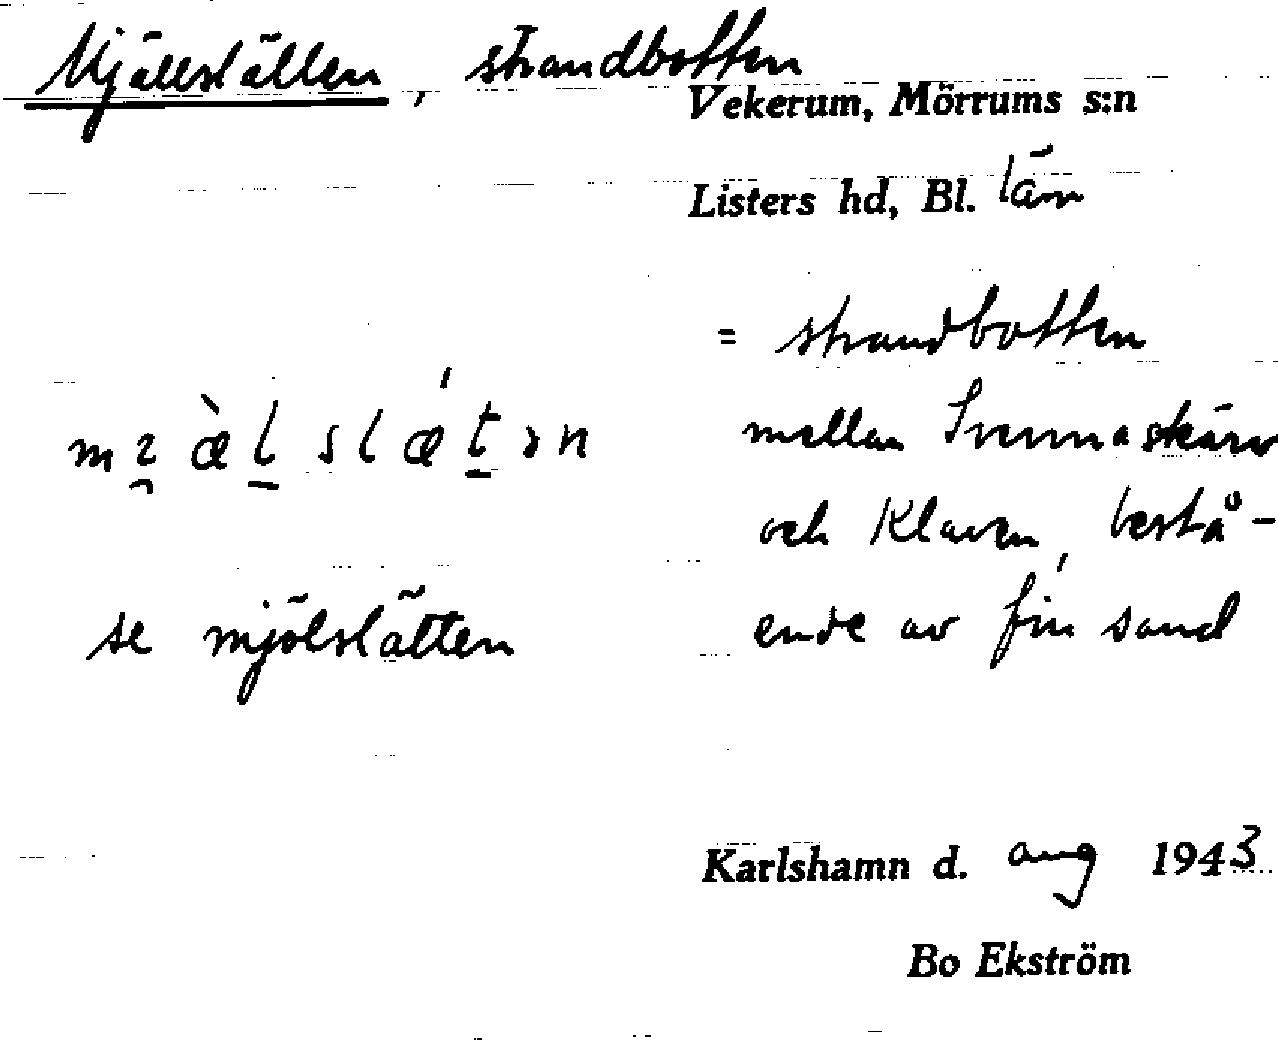 Mjällslätten, strandbotten
Vekerum, Mörrums s:n
Listers hd, Bl. län
= strandbotten
mellan Svennaskärv
och Klaven, bestå-
ende av fin sand
se mjölslätten
Karlshamn d. aug 1943
Bo Ekström